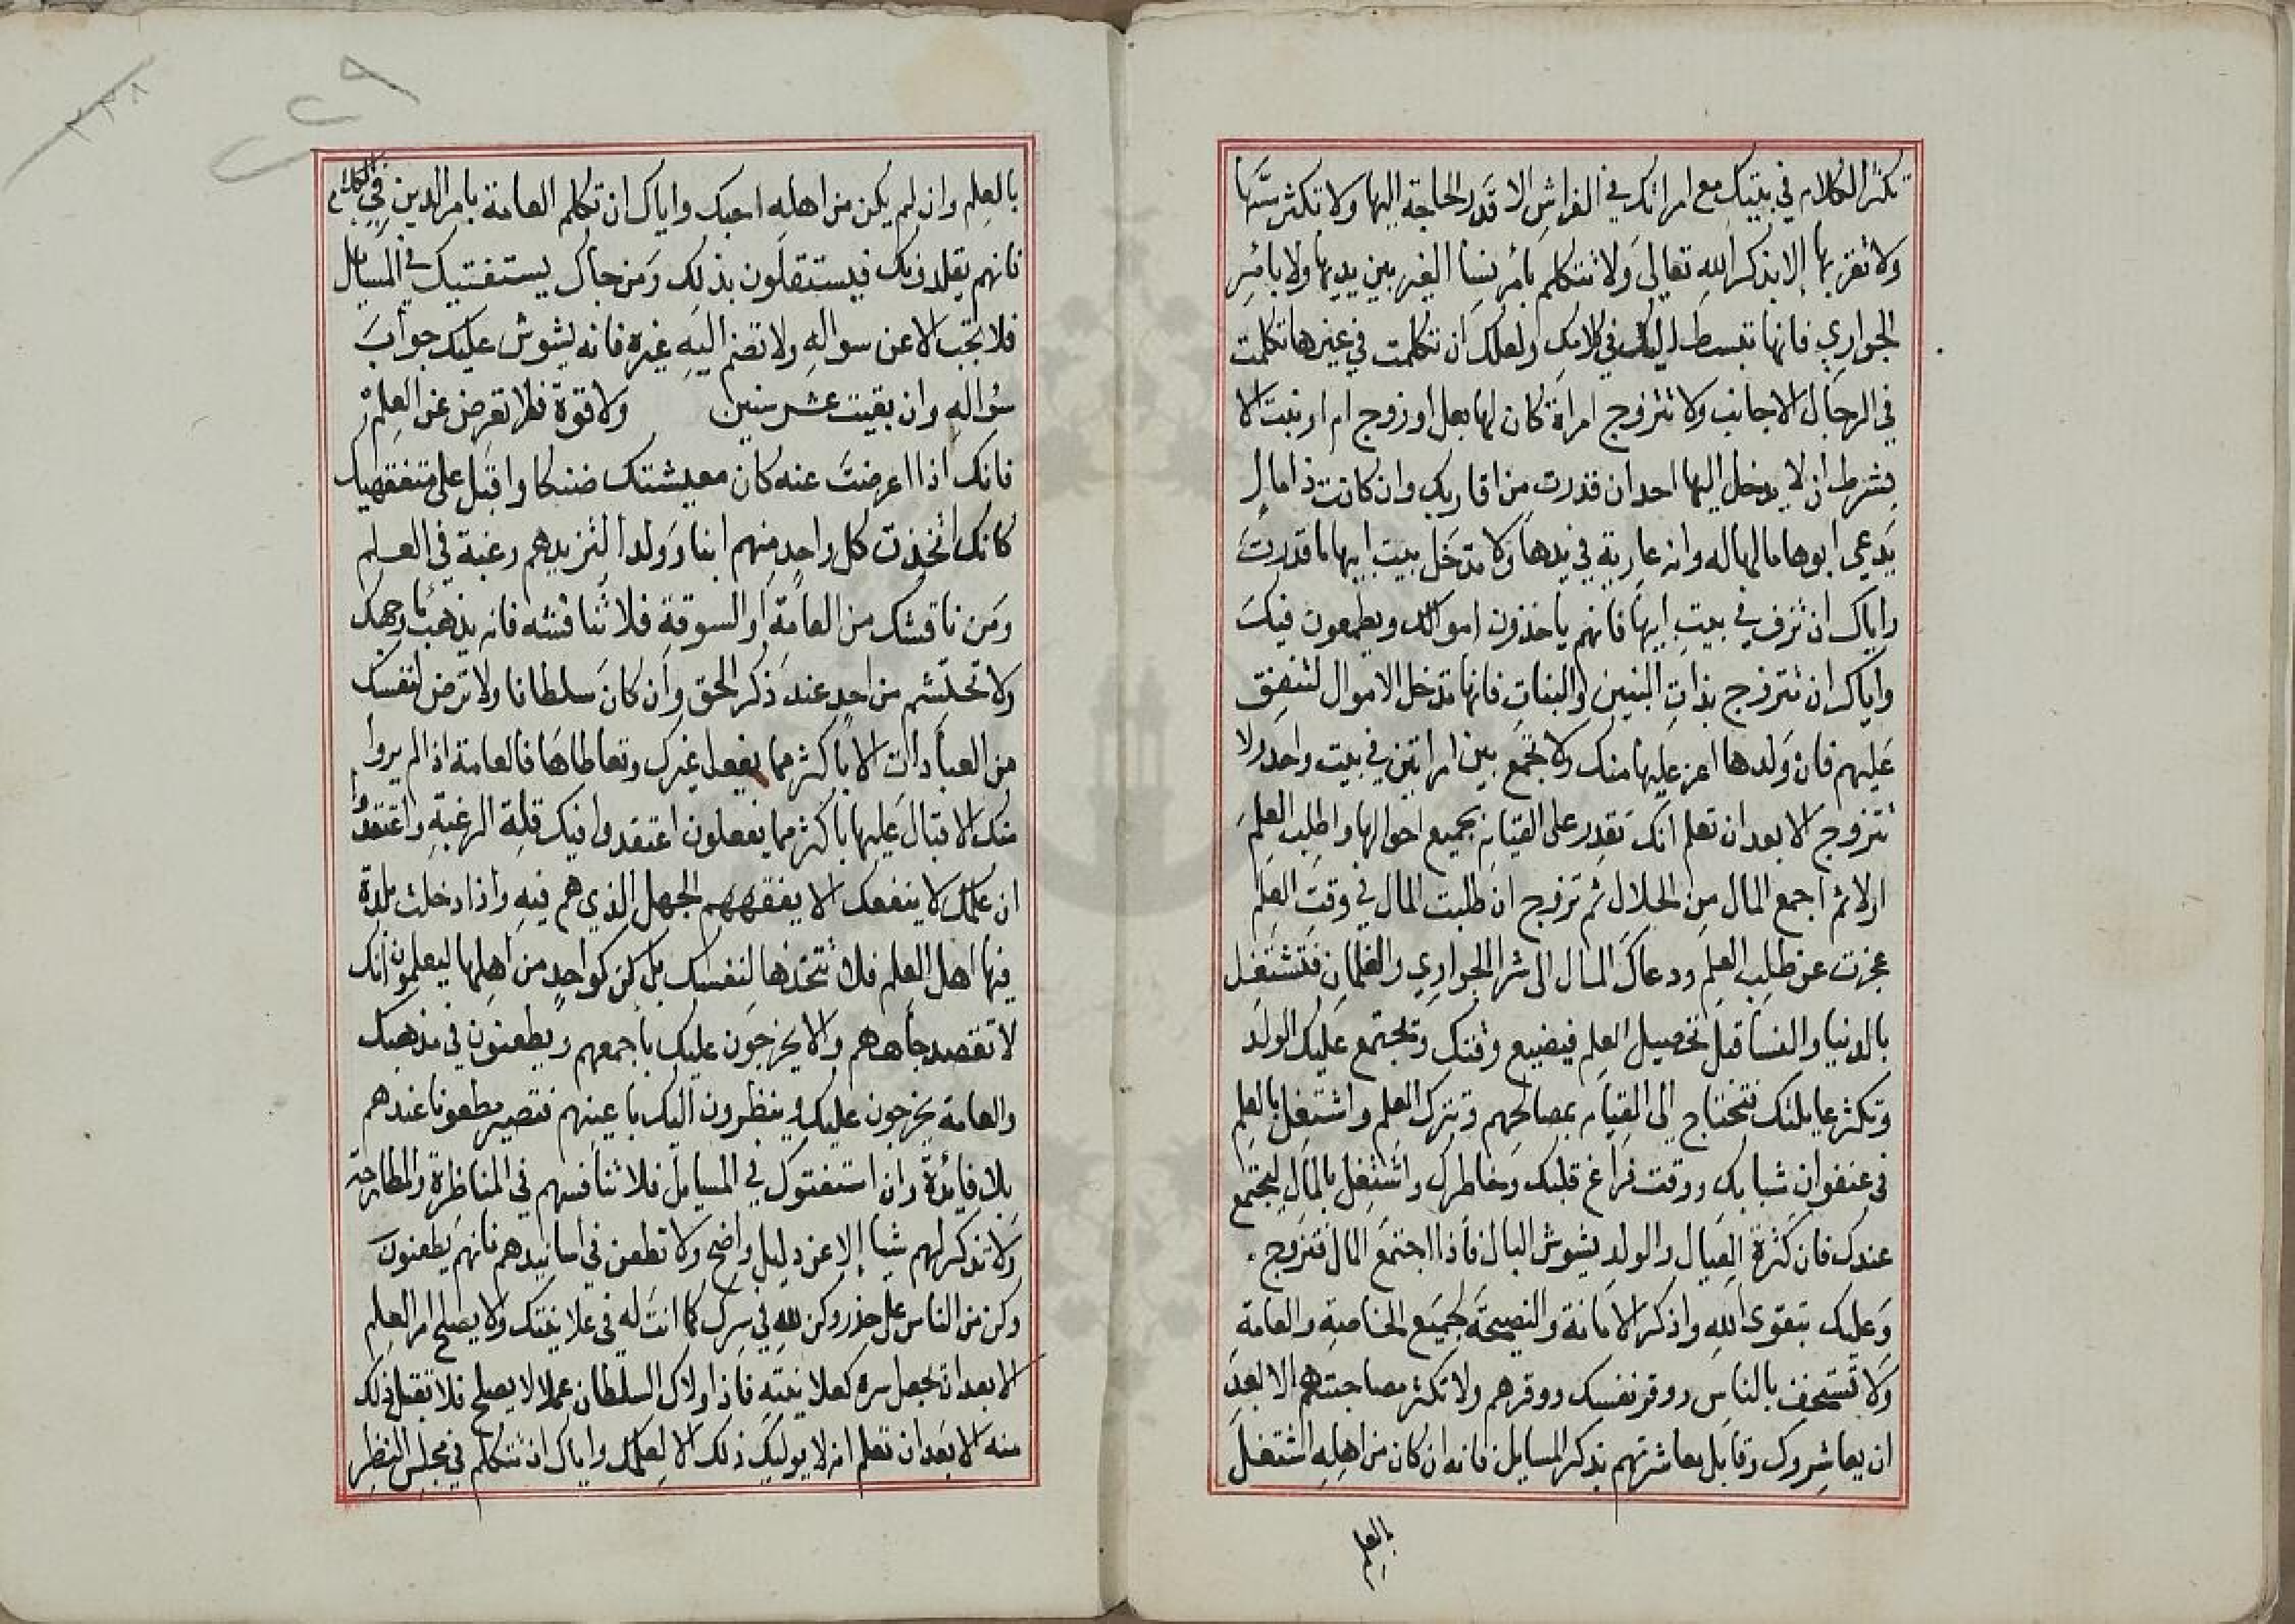 تكثر الكلام في بيتك مع امراتك في الفراش الا قدر الحاجة اليها ولا تكثر مسّها
ولا تقربها إلا بذكر الله تعالى ولا تتكلم بأمر نسا الغير بين يديها ولا بأمر
الجواري فانها تبسط اليك في كلامك ولعلك ان تكلمت في غيرها تكلمت
في الرجال الاجانب ولا تتزوج امراة كان لها بعل او زوج ام او بنت الا
بشرط ان لا يدخل اليها احد ان قدرت من اقاربك وان كانت ذا مال
يدعي ابوها مالها له وانه عارية في يدها ولا تدخل بيت ابيها ما قدرت
واياك ان تزف في بيت ابيها فانهم ياخذون اموالك ويطمعون فيك
واياك ان تتزوج بذات البنين والبنات فانها تدخل الاموال لتنفق
عليهم فان ولدها اعز عليها منك ولا تجمع بين امراتين في بيت واحد ولا
تتزوج الا بعد ان تعلم انك تقدر على القيام بجميع احوالها واطلب العلم
اولا ثم اجمع المال من الحلال ثم تزوج ان طلبت المال في وقت العلم
عجزت عن طلب العلم ودعاك المال الى شرا الجواري والغلمان فتشتغل
بالدنيا والنسا قبل تحصيل العلم فيضيع وقتك وتجتمع عليك الولد
وتكثر عايلتك فتحتاج الى القيام بمصالحهم وتترك العلم واشتغل بالعلم
في عنفوان شبابك ووقت فراغ قلبك وخاطرك واشتغل بالمال ليجتمع
عندك فان كثرة العيال والولد يشوش البال فأذا اجتمع المال فتزوج .
وعليك بتقوى الله واذكر الامانة والنصيحة لجميع الخاصة والعامة
ولا تستخف بالناس ووقر نفسك ووقرهم ولا تكثر مصاحبتهم الا بعد
ان يعاشروك وقابل معاشرتهم بذكر المسايل فانه ان كان من اهله اشتغل
بالعلم
بالعلم وان لم يكن من اهله احبك واياك ان تكلم العامة بامر الدين في الكلام
فانهم يقلدونك فيستقلون بذلك ومن جاك يستفتيك في المسايل
فلا تجب الا عن سواله ولا تضم اليه غيره فانه يشوش عليك جواب
سؤاله وان بقيت عشر سنين ولا قوة فلا تعرض عن العلم
فانك اذا اعرضت عنه كان معيشتك ضنكا واقبل على متفقهيك
كانك اتخذت كل واحد منهم ابنا وولدا لتزيدهم رغبة في العلم
ومن ناقشك من العامة او السوقة فلا تناقشه فانه يذهب ما وجهك
ولا تحتشم من احد عند ذكر الحق وان كان سلطانا ولا ترض لنفسك
من العبادات الا باكثر مما يفعل غيرك وتعاطاها فالعامة اذا لم يروا
منك الاقبال عليها باكثر مما يفعلون اعتقدوا فيك قلة الرغبة واعتقدوا
ان علمك لا ينفعك الا يفقههم الجهل الذي هم فيه واذا دخلت بلدة
فيها اهل العلم فلا تتخذها لنفسك بل كن كواحد من اهلها ليعلمون انك
لا تقصد جاههم والا يخرجون عليك باجمعهم ويطعنون في مذهبك
والعامة يخرجون عليك وينظرون اليك باعينهم فتصير مطعونا عندهم
بلا فائدة وان استفتوك في المسايل فلا تنافسهم في المناظرة والمطارحة
ولا تذكر لهم شيا إلا عن دليل واضح ولا تطعن في اسانيدهم فانهم يطعنون
وكن من الناس على حذر وكن لله في سرك كما انت له في علانيتك ولا يصلح امر العلم
الا بعد ان تجعل سره كعلانيته فاذا ولاك السلطان عملا لا يصلح فلا تقبل ذلك
منه الا بعد ان تعلم انه لا يوليك ذلك الا لعلمك واياك ان تتكلم في مجلس النظر